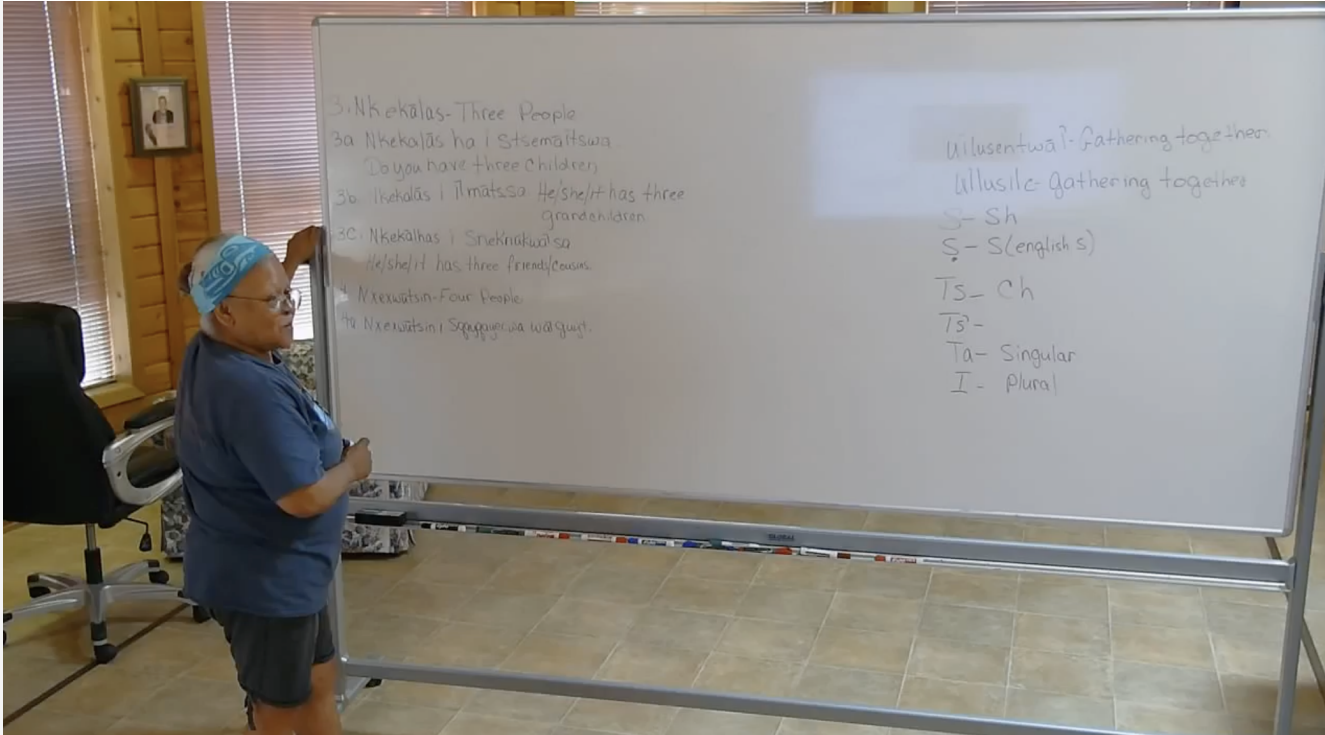 3. Nkekalas- Three People
3a Nkekalās ha i Stsemàītswa
Do you have three children
3b. Nkekalās i īlmātssa He/she/it has three
grandchildren
3c. Nkekālhas i
He/she/it has three friends/cousins.
4 Nxexwātsin-Four People
4a Nxexwātsin i
Gathering together
Ullusilc- gathering together
S- Sh
Ṣ - S (english s)
Ts- Ch
Ts̓ -
Ta- Singular
I - plural